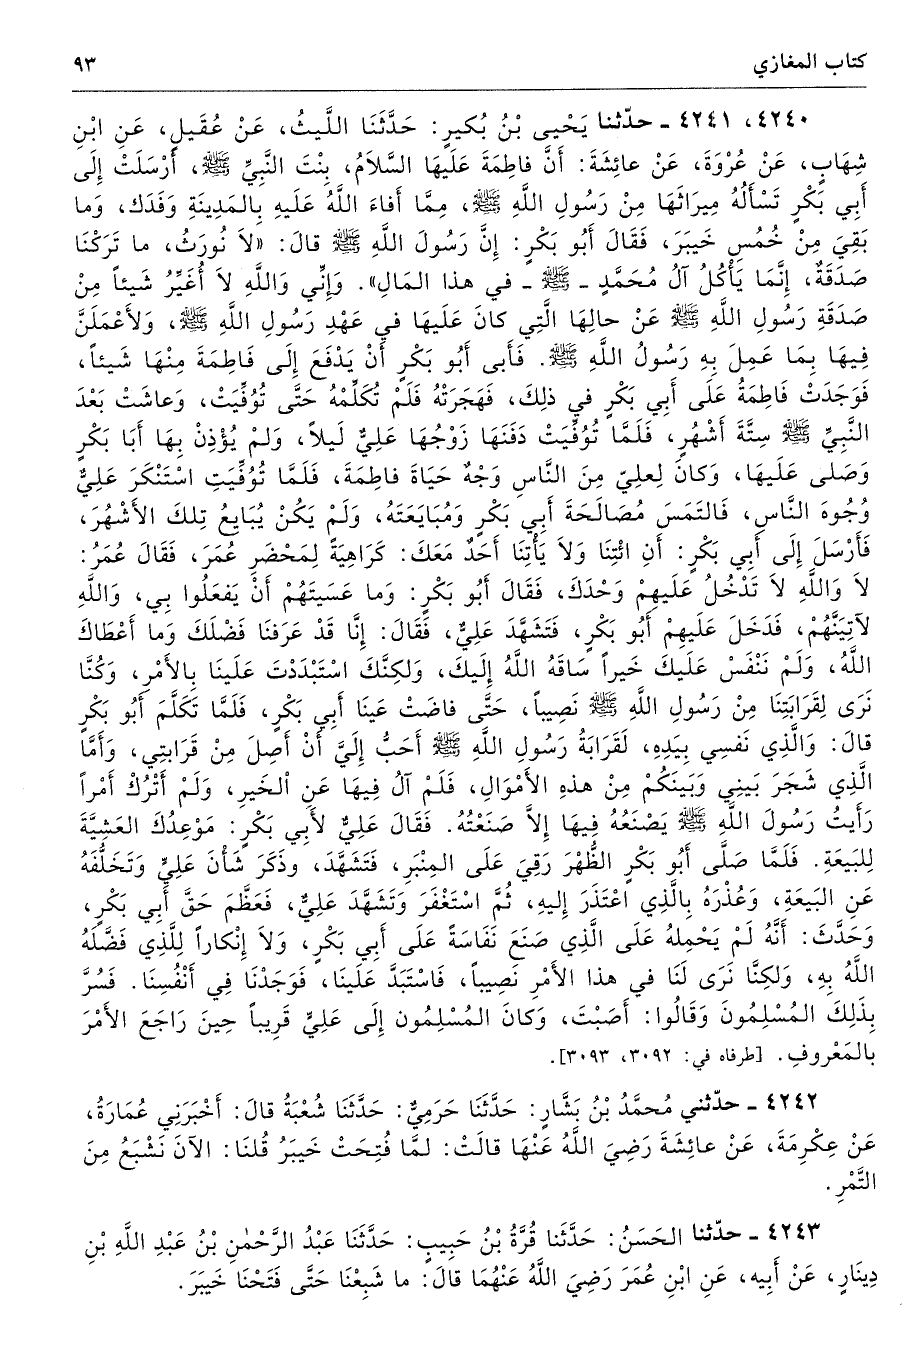 كتاب المغازي ٩٣
٤٢٤٠، ٤٢٤١ ـ حدّثنا يَحْيى بْنُ بُكيرٍ: حَدَّثَنَا اللَّيثُ، عَنْ عُقَيلٍ، عَنِ ابْنِ
شِهَابٍ، عَنْ عُرْوَةَ، عَنْ عائِشَةَ: أَنَّ فاطِمَةَ عَلَيهَا السَّلاَمُ، بِنْتَ النَّبِيِّ ﷺ، أَرْسَلَتْ إِلَى
أَبِي بَكْرٍ تَسْأَلُهُ مِيرَاثَهَا مِنْ رَسُولِ اللَّهِ ﷺ، مِمَّا أَفاءَ اللَّهُ عَلَيهِ بِالمَدِينَةِ وَفَدَك، وَما
بَقِيَ مِنْ خُمُسِ خَيبَرَ، فَقَالَ أَبُو بَكْرٍ: إِنَّ رَسُولَ اللَّهِ ﷺ قالَ: «لاَ نُورَثُ، ما تَرَكْنَا
صَدَقَةٌ، إِنَّمَا يَأْكُلُ آلُ مُحَمَّدٍ ـ ﷺ ـ في هذا المَالِ». وَإِنِّي وَاللَّهِ لاَ أُغَيِّرُ شَيئاً مِنْ
صَدَقَةِ رَسُولِ اللَّهِ ﷺ عَنْ حالِهَا الَّتِي كانَ عَلَيهَا في عَهْدِ رَسُولِ اللَّهِ ﷺ، وَلأَعْمَلَنَّ
فِيهَا بِمَا عَمِلَ بِهِ رَسُولُ اللَّهِ ﷺ. فَأَبى أَبُو بَكْرٍ أَنْ يَدْفَعَ إِلَى فَاطِمَةَ مِنْهَا شَيئاً،
فَوَجَدَتْ فَاطِمَةُ عَلَى أَبِي بَكْرٍ في ذلِكَ، فَهَجَرَتْهُ فَلَمْ تُكَلِّمْهُ حَتَّى تُوُفِّيَتْ، وَعاشَتْ بَعْدَ
النَّبِيِّ ﷺ سِتَّةَ أَشْهُرٍ، فَلَمَّا تُوُفِّيَتْ دَفَنَهَا زَوْجُهَا عَلِيٌّ لَيلاً، وَلَمْ يُؤْذِنْ بِهَا أَبَا بَكْرٍ
وَصَلى عَلَيهَا، وَكانَ لِعَلِيّ مِنَ النَّاسِ وَجْهٌ حَيَاةَ فاطِمَةَ، فَلَمَّا تُوُفِّيَتِ اسْتَنْكَرَ عَلِيٌّ
وُجُوهَ النَّاسِ، فَالتَمَسَ مُصَالَحَةَ أَبِي بَكْرٍ وَمُبَايَعَتَهُ، وَلَمْ يَكُنْ يُبَايِعُ تِلكَ الأَشْهُرَ،
فَأَرْسَلَ إِلَى أَبِي بَكْرٍ: أَنِ ائْتِنَا وَلاَ يَأْتِنَا أَحَدٌ مَعَكَ: كَرَاهِيَةً لِمَحْضَرِ عُمَرَ، فَقَالَ عُمَرُ:
لاَ وَاللَّهِ لاَ تَدْخُلُ عَلَيهِمْ وَحْدَكَ، فَقَالَ أَبُو بَكْرٍ: وَما عَسَيتَهُمْ أَنْ يَفعَلُوا بِي، وَاللَّهِ
لآتِيَنَّهُمْ، فَدَخَلَ عَلَيهِمْ أَبُو بَكْرٍ، فَتَشَهَّدَ عَلِيٌّ، فَقَالَ: إِنَّا قَدْ عَرَفنَا فَضْلَكَ وَما أَعْطَاكَ
اللَّهُ، وَلَمْ نَنْفَسْ عَلَيكَ خَيراً سَاقَهُ اللَّهُ إِلَيكَ، وَلكِنَّكَ اسْتَبْدَدْتَ عَلَينَا بِالأَمْرِ، وَكُنَّا
نَرَى لِقَرَابَتِنَا مِنْ رَسُولِ اللَّهِ ﷺ نَصِيباً، حَتَّى فاضَتْ عَينَا أَبِي بَكْرٍ، فَلَمَّا تَكَلَّمَ أَبُو بَكْرٍ
قالَ: وَالَّذِي نَفسِي بِيَدِهِ، لَقَرَابَةُ رَسُولِ اللَّهِ ﷺ أَحَبُّ إِلَيَّ أَنْ أَصِلَ مِنْ قَرَابتِي، وَأَمَّا
الَّذِي شَجَرَ بَينِي وَبَينَكُمْ مِنْ هذهِ الأَمْوَالِ، فَلَمْ آلُ فِيهَا عَنِ الخَيرِ، وَلَمْ أَتْرُكْ أَمْراً
رَأَيتُ رَسُولَ اللَّهِ ﷺ يَصْنَعُهُ فِيهَا إِلاَّ صَنَعْتُهُ. فَقَالَ عَلِيٌّ لأَبِي بَكْرٍ: مَوْعِدُكَ العَشِيَّةَ
لِلبَيعَةِ. فَلَمَّا صَلَّى أَبُو بَكْرٍ الظُّهْرَ رَقِيَ عَلَى المِنْبَرِ، فَتَشَهَّدَ، وذَكَرَ شَأْنَ عَلِيٍّ وَتَخَلُّفَهُ
عَنِ البَيعَةِ، وَعُذْرَهُ بِالَّذِي اعْتَذَرَ إِليهِ، ثُمَّ اسْتَغْفَرَ وَتَشَهَّدَ عَلِيٌّ، فَعَظَّمَ حَقَّ أَبِي بَكْرٍ،
وَحَدَّثَ: أَنَّهُ لَمْ يَحْمِلهُ عَلَى الَّذِي صَنَعَ نَفَاسَةً عَلَى أَبِي بَكْرٍ، وَلاَ إِنْكاراً لِلَّذِي فَضَّلَهُ
اللَّهُ بِهِ، وَلكِنَّا نَرَى لَنَا في هذا الأَمْرِ نَصِيباً، فَاسْتَبَدَّ عَلَينَا، فَوَجَدْنَا فِي أَنْفُسِنَا. فَسُرَّ
بِذَلِكَ المُسْلِمُونَ وَقَالُوا: أَصَبْتَ، وَكانَ المُسْلِمُون إِلى عَلِيٍّ قَرِيباً حِينَ رَاجَعَ الأَمْرَ
بِالمَعْروفِ. [طرفاه في: ٣٠٩٢، ٣٠٩٣].
٤٢٤٢ ـ حدّثني مُحمَّدُ بْنُ بَشَّارٍ: حَدَّثَنَا حَرَمِيٌّ: حَدَّثَنَا شُعْبَةُ قالَ: أَخْبَرَنِي عُمَارَةُ،
عَنْ عِكْرِمَةَ، عَنْ عائِشَةَ رَضِيَ اللَّهُ عَنْهَا قالَتْ: لَمَّا فُتِحَتْ خَيبَرُ قُلنَا: الآنَ نَشْبَعُ مِنَ
التَّمْرِ.
٤٢٤٣ ـ حدّثنا الحَسَنُ: حَدَّثَنا قُرَّةُ بْنُ حَبِيبٍ: حَدَّثَنَا عَبْدُ الرَّحْمٰنِ بْنُ عَبْدِ اللَّهِ بْنِ
دِينَارٍ، عَنْ أَبِيه، عَنِ ابْنِ عُمَرَ رَضِيَ اللَّهُ عَنْهُمَا قالَ: ما شَبِعْنَا حَتَّى فَتَحْنَا خَيبَرَ.